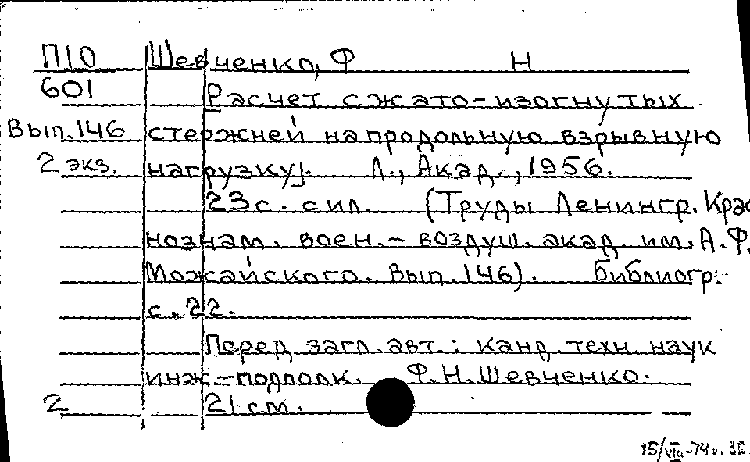 П10 Шевченко, Ф Н
601 Расчет сжато-изогнутых
Вып.146 стержней на продольную взрывную
2 экз. нагрузку. Л., Акад., 1956.
23с. с ил. (Труды Ленингр. Крас
нознам. воен.-воздуш. акад. им. А.Ф.
Можайского. Вып. 146). Библиогр.
с. 22.
Перед загл. авт.: канд. техн. наук
инж-подполк. Ф.Н. Шевченко.
2 21 см.
15/VIII-74г.